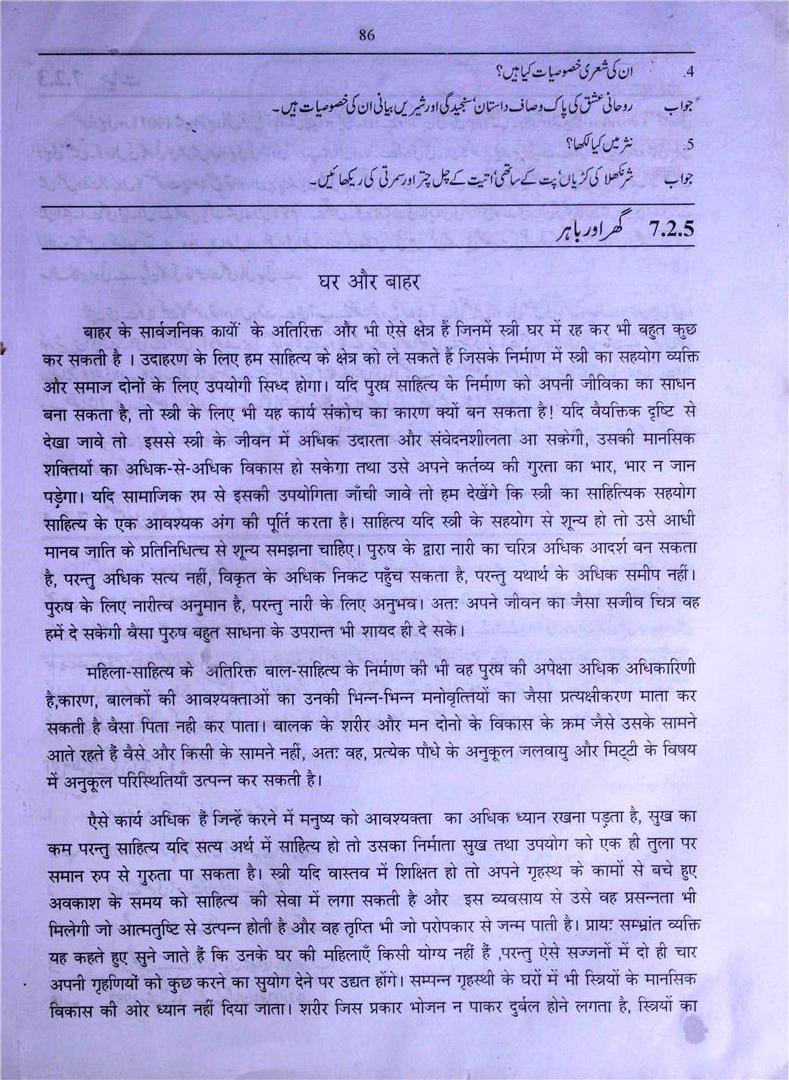 86
4. ان کی شعری خصوصیات کیا ہیں؟
جواب روحانی عشق کی پاک وصاف داستان، سنجیدگی اور شیریں بیانی ان کی خصوصیات ہیں۔
5. نثر میں کیا لکھا؟
جواب شرنکھلا کی کڑیاں، پت کے ساتھی، اتیت کے چل چتر اور سمرتی کی ریکھائیں۔
7.2.5 گھر اور باہر
घर और बाहर
बाहर के सार्वजनिक कार्यो के अतिरिक्त और भी ऐसे क्षेत्र हैं जिनमें स्त्री घर में रह कर भी बहुत कुछ
कर सकती है । उदाहरण के लिए हम साहित्य के क्षेत्र को ले सकते हैं जिसके निर्माण में स्त्री का सहयोग व्यक्ति
और समाज दोनों के लिए उपयोगी सिध्द होगा। यदि पुरुष साहित्य के निर्माण को अपनी जीविका का साधन
बना सकता है, तो स्त्री के लिए भी यह कार्य संकोच का कारण क्यों बन सकता है! यदि वैयक्तिक दृष्टि से
देखा जावे तो इससे स्त्री के जीवन में अधिक उदारता और संवेदनशीलता आ सकेगी, उसकी मानसिक
शक्तियों का अधिक-से-अधिक विकास हो सकेगा तथा उसे अपने कर्तव्य की गुरुता का भार, भार न जान
पड़ेगा। यदि सामाजिक रुप से इसकी उपयोगिता जाँची जावे तो हम देखेंगे कि स्त्री का साहित्यिक सहयोग
साहित्य के एक आवश्यक अंग की पूर्ति करता है। साहित्य यदि स्त्री के सहयोग से शून्य हो तो उसे आधी
मानव जाति के प्रतिनिधित्च से शून्य समझना चाहिए। पुरुष के द्वारा नारी का चरित्र अधिक आदर्श बन सकता
है, परन्तु अधिक सत्य नहीं, विकृत के अधिक निकट पहुँच सकता है, परन्तु यथार्थ के अधिक समीप नहीं।
पुरुष के लिए नारीत्व अनुमान है, परन्तु नारी के लिए अनुभव। अतः अपने जीवन का जैसा सजीव चित्र वह
हमें दे सकेगी वैसा पुरुष बहुत साधना के उपरान्त भी शायद ही दे सके।
महिला-साहित्य के अतिरिक्त बाल-साहित्य के निर्माण की भी वह पुरुष की अपेक्षा अधिक अधिकारिणी
है,कारण, बालकों की आवश्यक्ताओं का उनकी भिन्न-भिन्न मनोवृत्तियों का जैसा प्रत्यक्षीकरण माता कर
सकती है वैसा पिता नही कर पाता। बालक के शरीर और मन दोनो के विकास के क्रम जैसे उसके सामने
आते रहते हैं वैसे और किसी के सामने नहीं, अतः वह, प्रत्येक पौधे के अनुकूल जलवायु और मिट्टी के विषय
में अनुकूल परिस्थितियाँ उत्पन्न कर सकती है।
ऐसे कार्य अधिक हैं जिन्हें करने में मनुष्य को आवश्यक्ता का अधिक ध्यान रखना पड़ता है, सुख का
कम परन्तु साहित्य यदि सत्य अर्थ में साहित्य हो तो उसका निर्माता सुख तथा उपयोग को एक ही तुला पर
समान रुप से गुरुता पा सकता है। स्त्री यदि वास्तव में शिक्षित हो तो अपने गृहस्थ के कामों से बचे हुए
अवकाश के समय को साहित्य की सेवा में लगा सकती है और इस व्यवसाय से उसे वह प्रसन्नता भी
मिलेगी जो आत्मतुष्टि से उत्पन्न होती है और वह तृप्ति भी जो परोपकार से जन्म पाती है। प्रायः सम्भ्रांत व्यक्ति
यह कहते हुए सुने जाते हैं कि उनके घर की महिलाएँ किसी योग्य नहीं हैं ,परन्तु ऐसे सज्जनों में दो ही चार
अपनी गृहणियों को कुछ करने का सुयोग देने पर उद्यत होंगे। सम्पन्न गृहस्थी के घरों में भी स्त्रियों के मानसिक
विकास की ओर ध्यान नहीं दिया जाता। शरीर जिस प्रकार भोजन न पाकर दुर्बल होने लगता है, स्त्रियों का